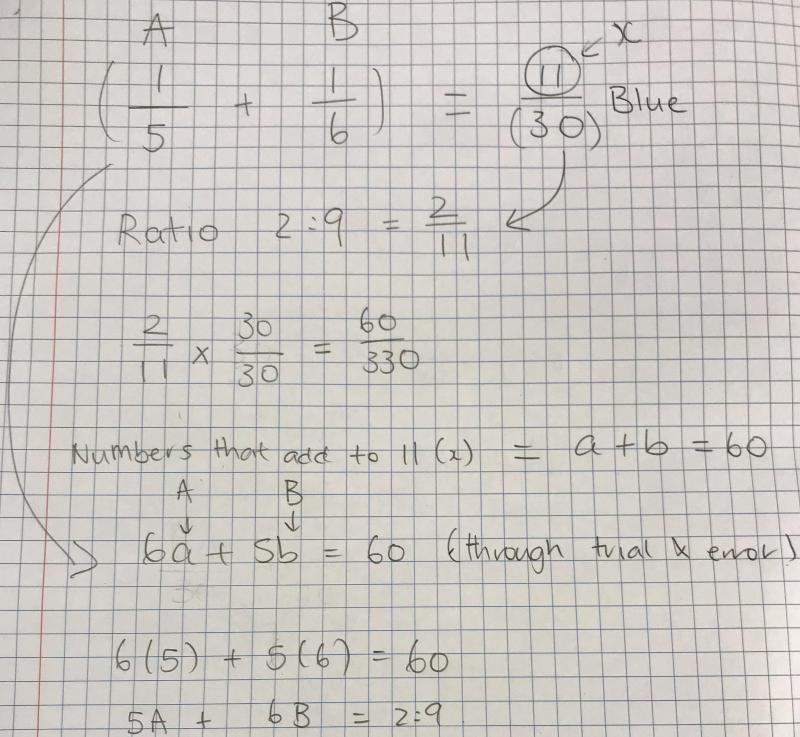 A B
(1/5 + 1/6) = 11/(30) Blue ← x
Ratio 2:9 = 2/11
2/11 x 30/30 = 60/330
Numbers that add to 11 (x) = a + b = 60
A B
↓ ↓
6a + 5b = 60 (through trial & error)
6(5) + 5(6) = 60
5A + 6B = 2:9